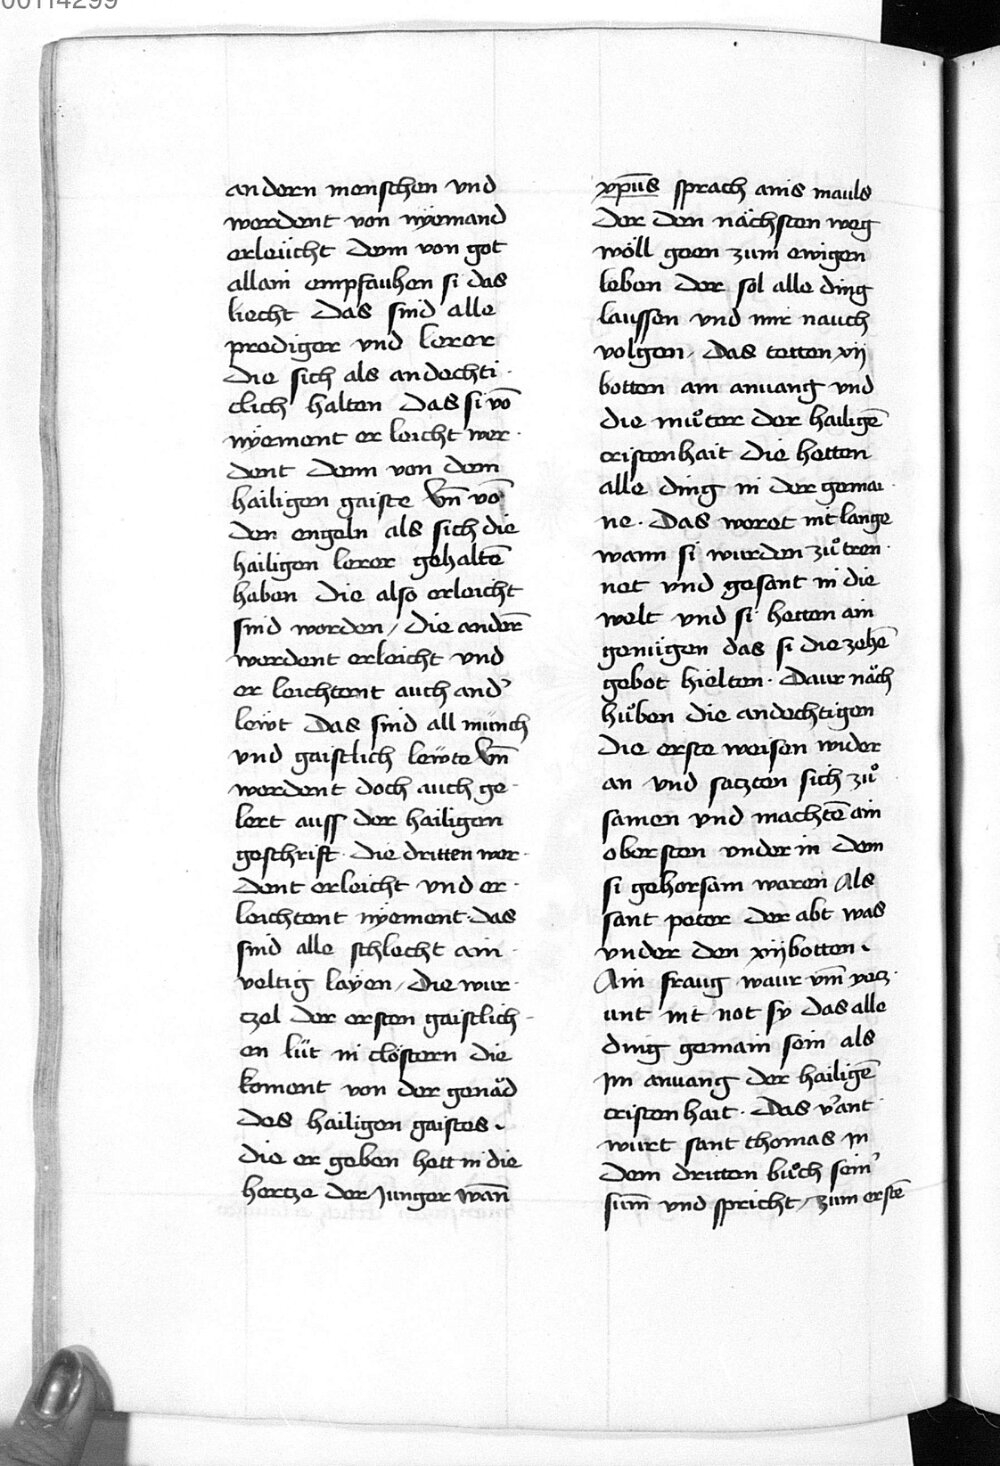 00114299
andern menschen vnd
werdent von nÿemand
erleücht denn von got
allain empfauhen si das
liecht Das sind alle
prediger vnd lerer
Die sich als andechti·
clich halten Das si vō
nÿement er leicht wer·
dent denn von dem
hailigen gaiste Vn̄ vō
den engeln als sich die
hailigen lerer gehaltē
haben Die also erleicht
sind worden / Die anderē
werdent erleicht vnd
er leichtent auch and’
lewt Das sind all münch
vnd gaistlich lewte Vn̄
werdent doch auch ge·
lert auss der hailigen
geschrift · Die dritten wer·
dent erleicht vnd er·
leichtent nÿement · das
sind alle schlecht ain·
veltig layen / Die wur·
czel der ersten gaistlich-
en lüt in clöstern die
koment von der genăd
des hailigen gaistes·
Die er geben hett in die
hertze der Junger wān
xp̄us sprach ains mauls
Der den nächsten weg
wöll geen zum ewigen
leben der sol alle ding
laussen vnd mir nauch
volgen / Das tetten xij
botten am anuang vnd
die můter der hailigē
cristenhait die hetten
alle ding in der gemai·
ne · Das weret nit lange
wann si wurden zůtren·
net vnd gesant in die
welt vnd si hetten ain
genügen das si die zehē
gebot hielten · Daur näch
hůben die andechtigen
Die erste weisen wider
an vnd satzten sich zů
samen vnd machtē ain
obersten vnder in dem
si gehorsam waren Als
sant peter der abt was
vnder den xijbotten·
Ain fraug waur vm̄ yecz·
unt nit not sy das alle
ding gemain sein als
Jm anuang der hailigē
cristenhait · Das v’ant·
wurt sant thomas Jn
dem dritten bůch sein’
sum̄ vnd spricht / zum erstē